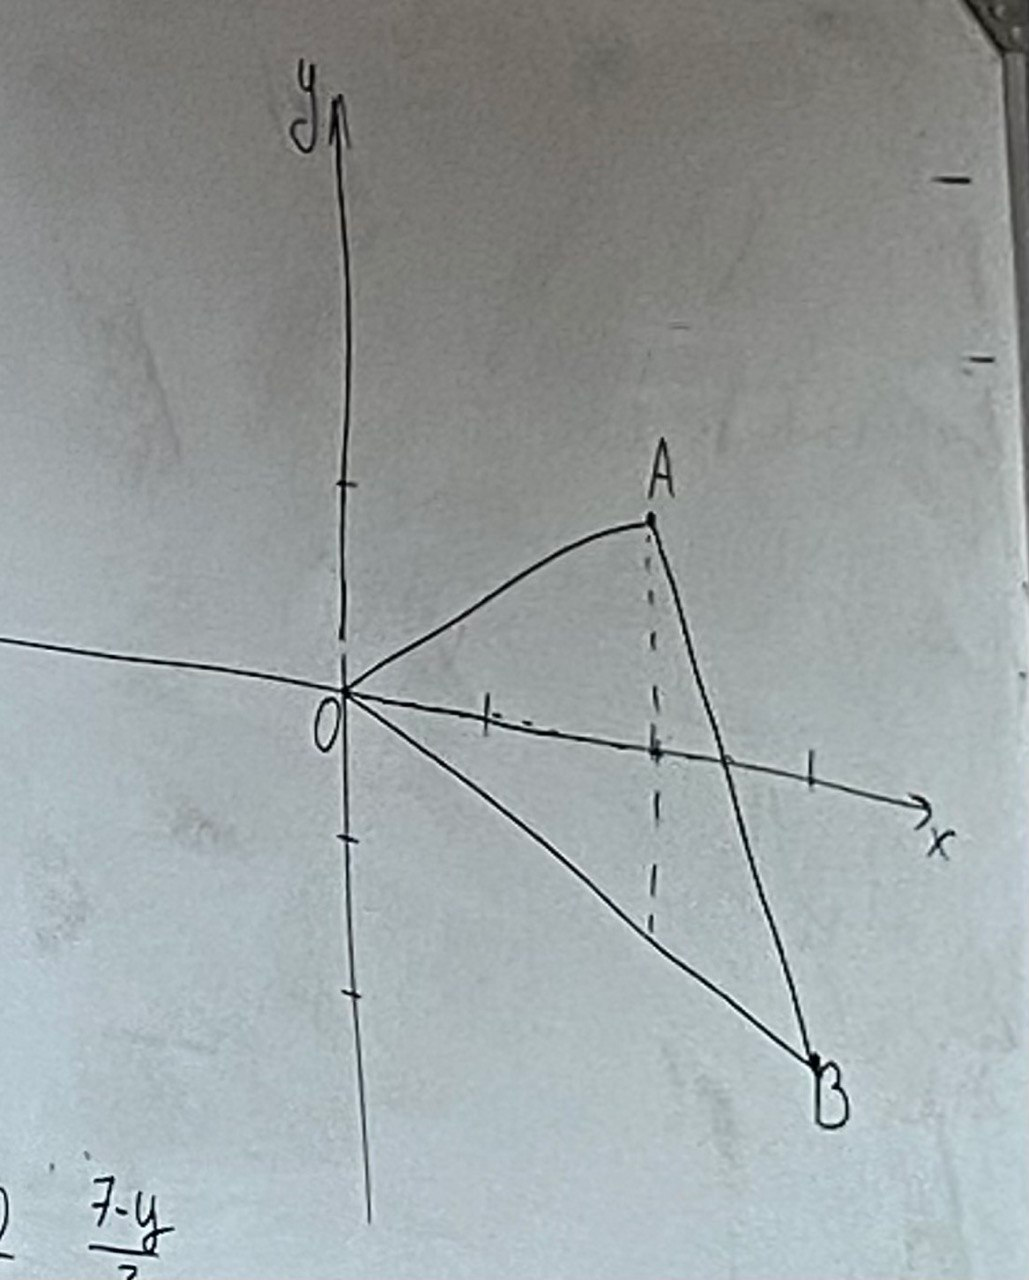 y
A
O
x
B
7-y